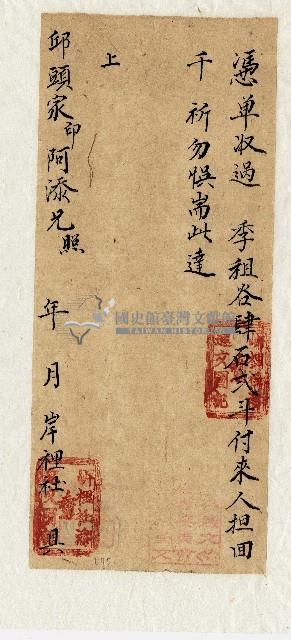 憑单收過 季租谷肆石弍斗付來人担回
千祈勿悞耑此達
上
邱頭家印阿添兄照
年 月 岸裡社 具
國史館臺灣文獻館
TAIWAN HISTORICA